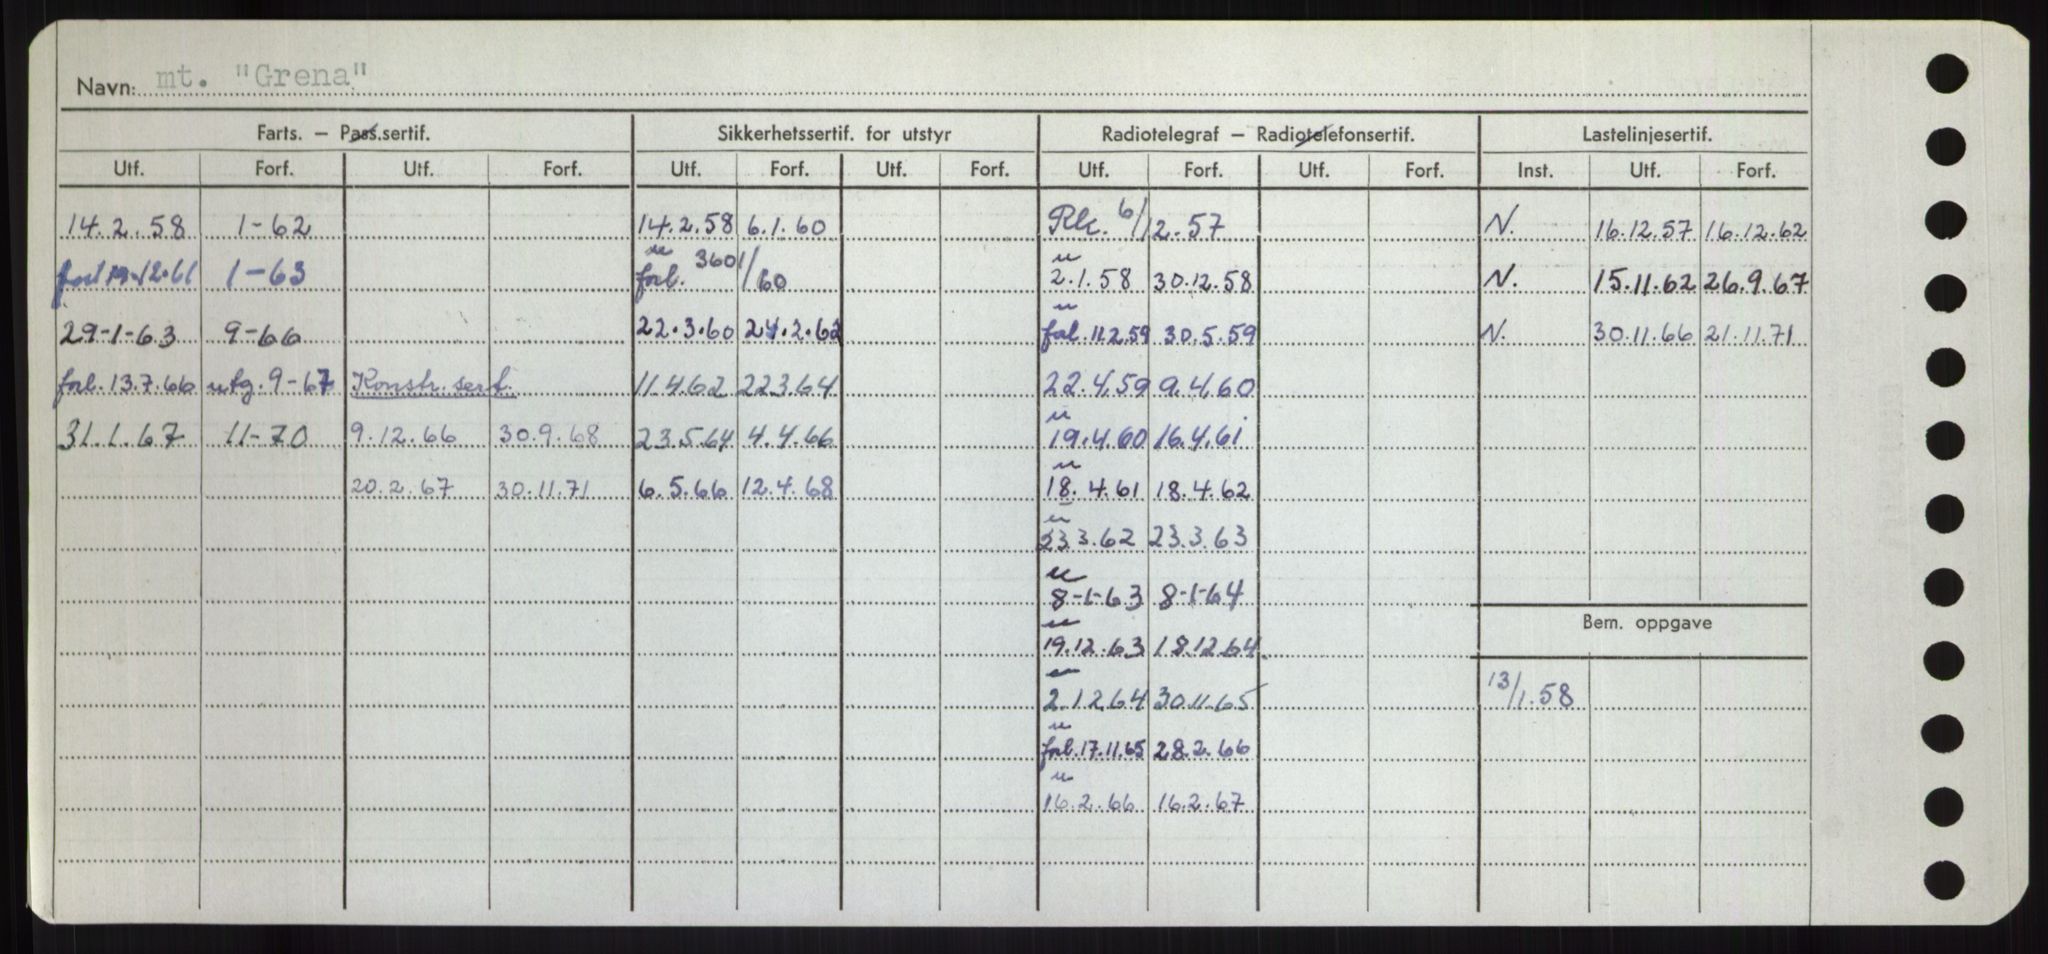 Navn: mt. "Grena"
Farts. — Pass.sertif. Sikkerhetssertif. for utstyr Radiotelegraf — Radiotelefonsertif. Lastelinjesertif.
Utf. Forf. Utf. Forf. Utf. Forf. Utf. Forf. Utf. Forf. Utf. Forf. Inst. Utf. Forf.
14.2.58 1-62 14.2.58 6.1.60 Rk. 6/12.57 N. 16.12.57 16.12.62
forl 19.12.61 1-63 " forl. /60 " 2.1.58 30.12.58 N. 15.11.62 26.9.67
29-1-63 9-66 22.3.60 24.2.62 " forl. 11.2.59 30.5.59 N. 30.11.66 21.11.71
forl. 13.7.66 utg. 9-67 Konstr. sert. 11.4.62 22.3.64 22.4.59 9.4.60
31.1.67 11-70 9.12.66 30.9.68 23.5.64 4.4.66 " 19.4.60 16.4.61
20.2.67 30.11.71 6.5.66 12.4.68 " 18.4.61 18.4.62
" 23.3.62 23.3.63
" 8-1-63 8-1-64
Bem. oppgave
" 19.12.63 18.12.64
" 2.12.64 30.11.65 13/1.58
" forl. 17.11.65 28.2.66
" 16.2.66 16.2.67